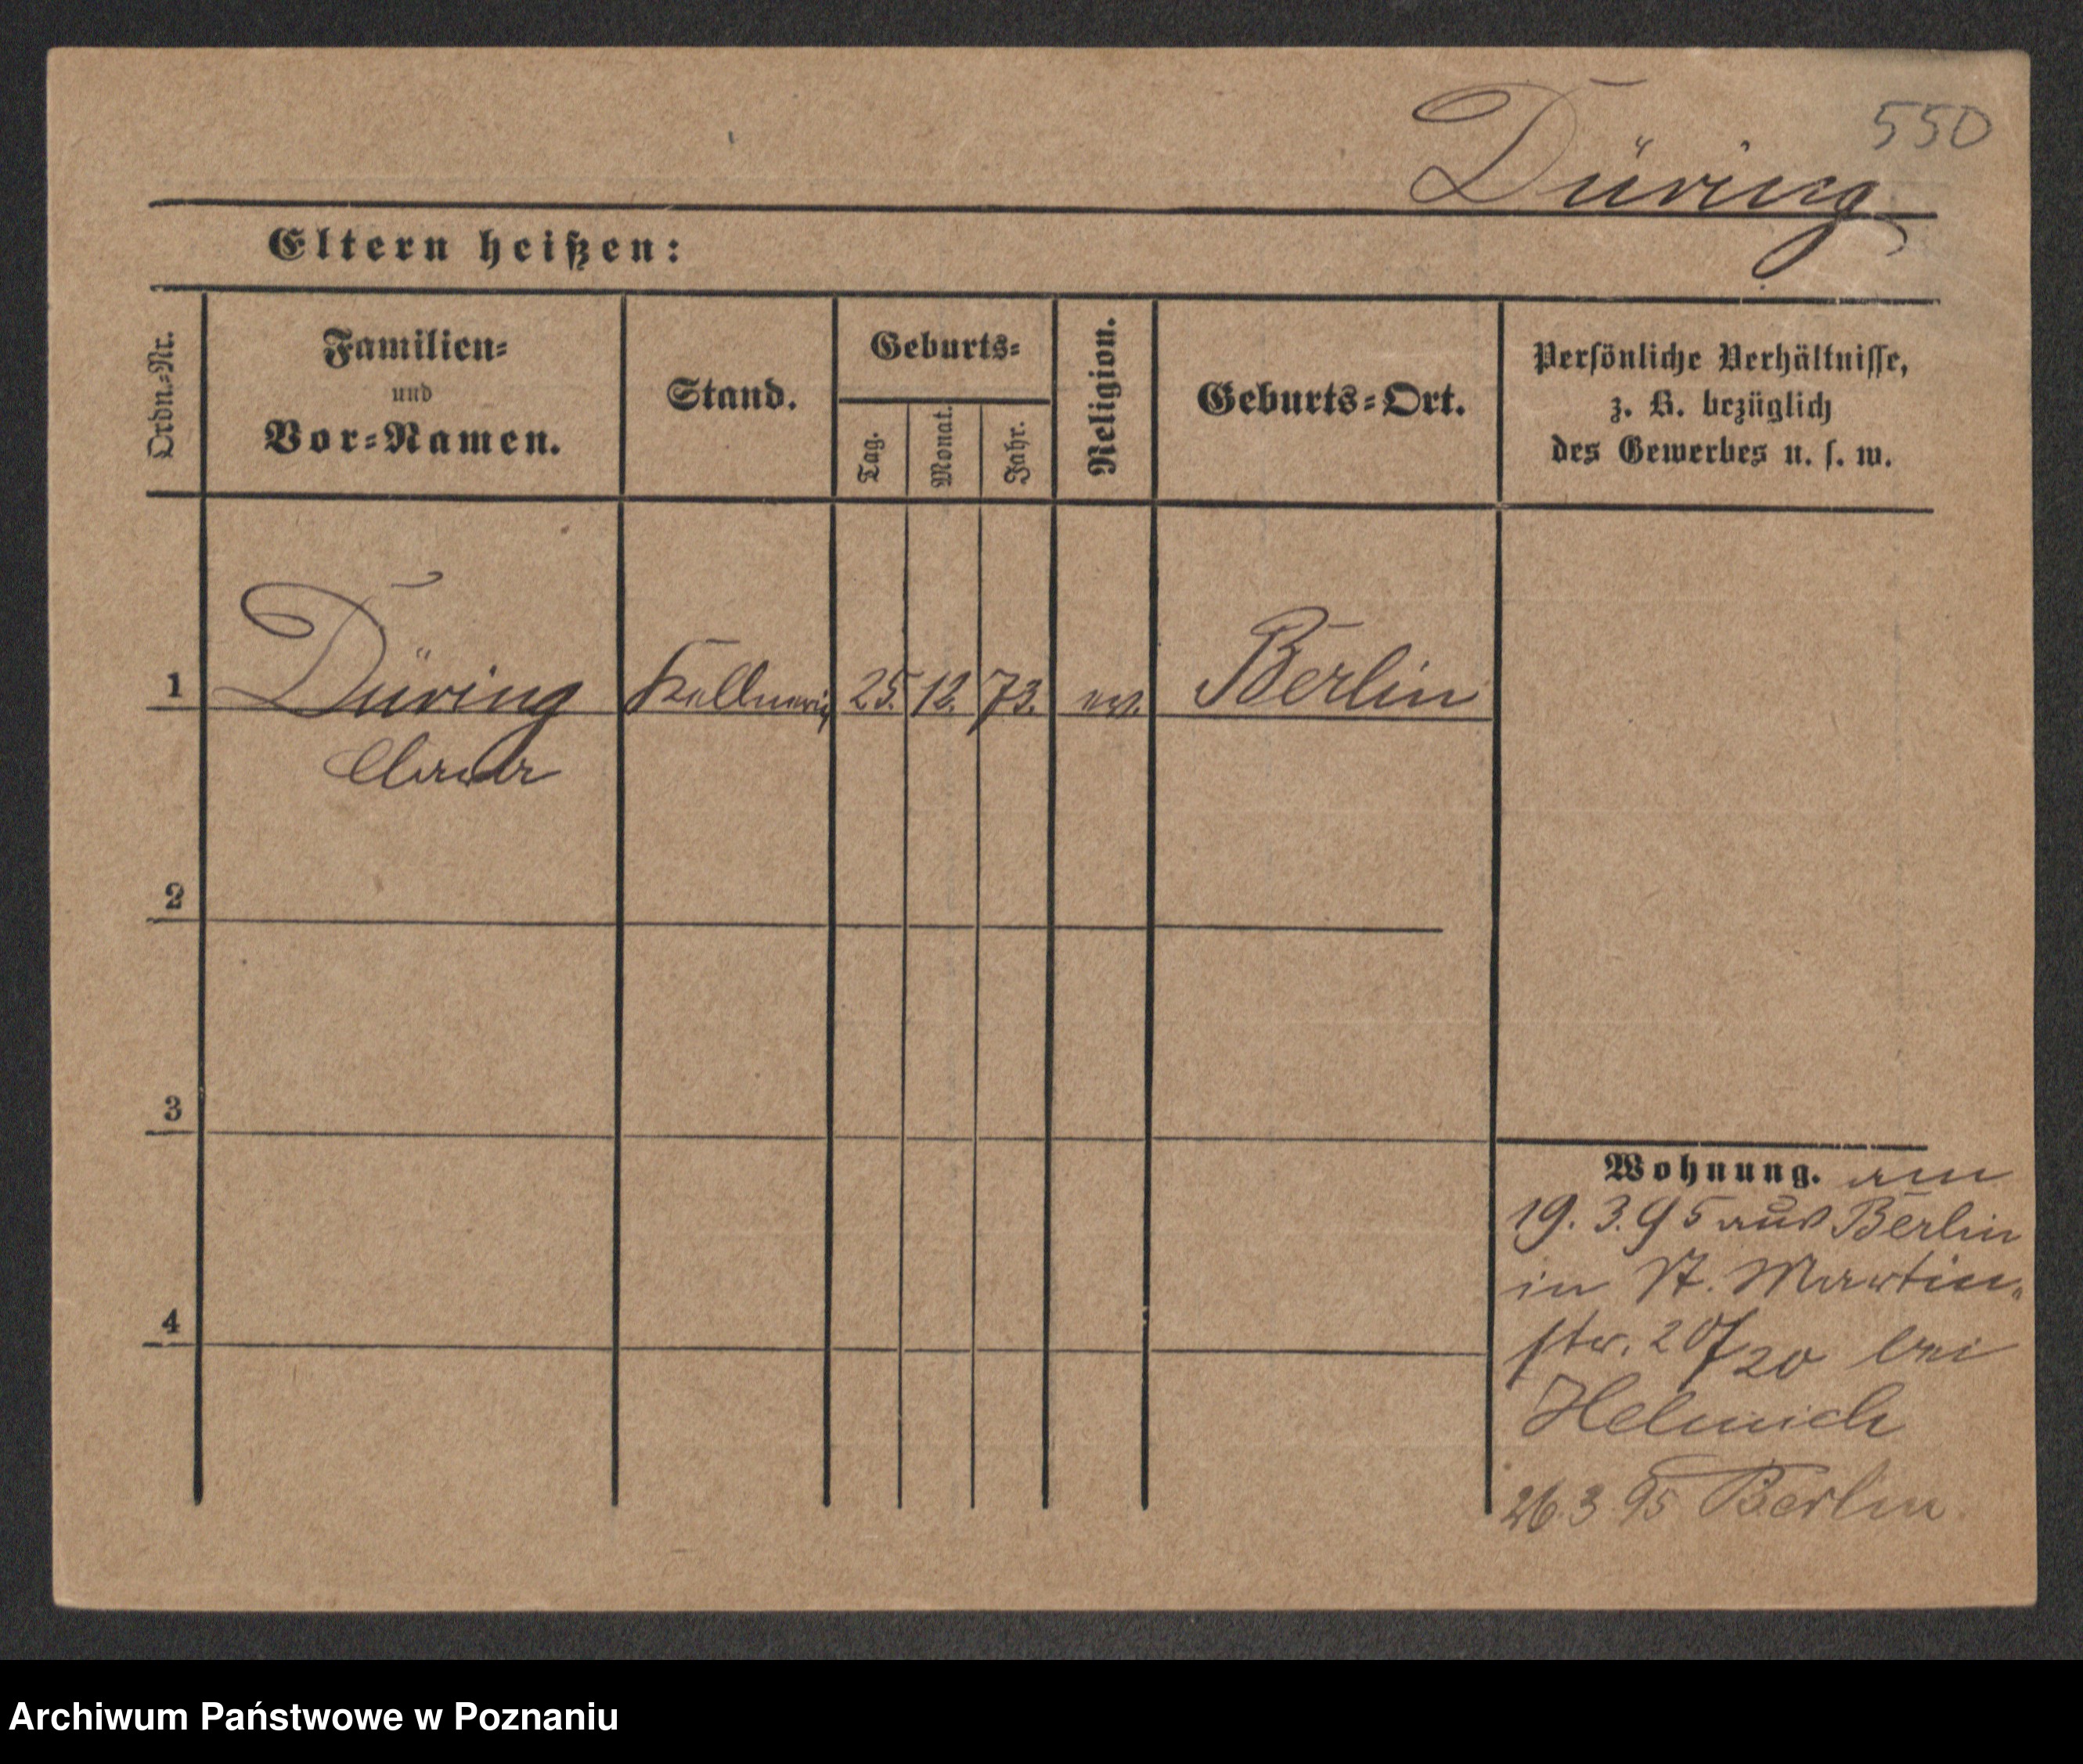 550
Düring
Eltern heißen:
Ordn.-Nr.
Familien-
und
Vor-Namen.
Stand.
Geburts-
Tag.
Monat.
Jahr.
Religion.
Geburts-Ort.
Persönliche Verhältnisse,
z. B. bezüglich
des Gewerbes u. s. w.
1 Düring Kellnerin 25. 12. 73. ev. Berlin
Clara
2
3
4
Wohnung. am
19. 3. 95 aus Berlin
in St. Martin-
str. 20/20 bei
Helmich
26. 3 95 Berlin
Archiwum Państwowe w Poznaniu